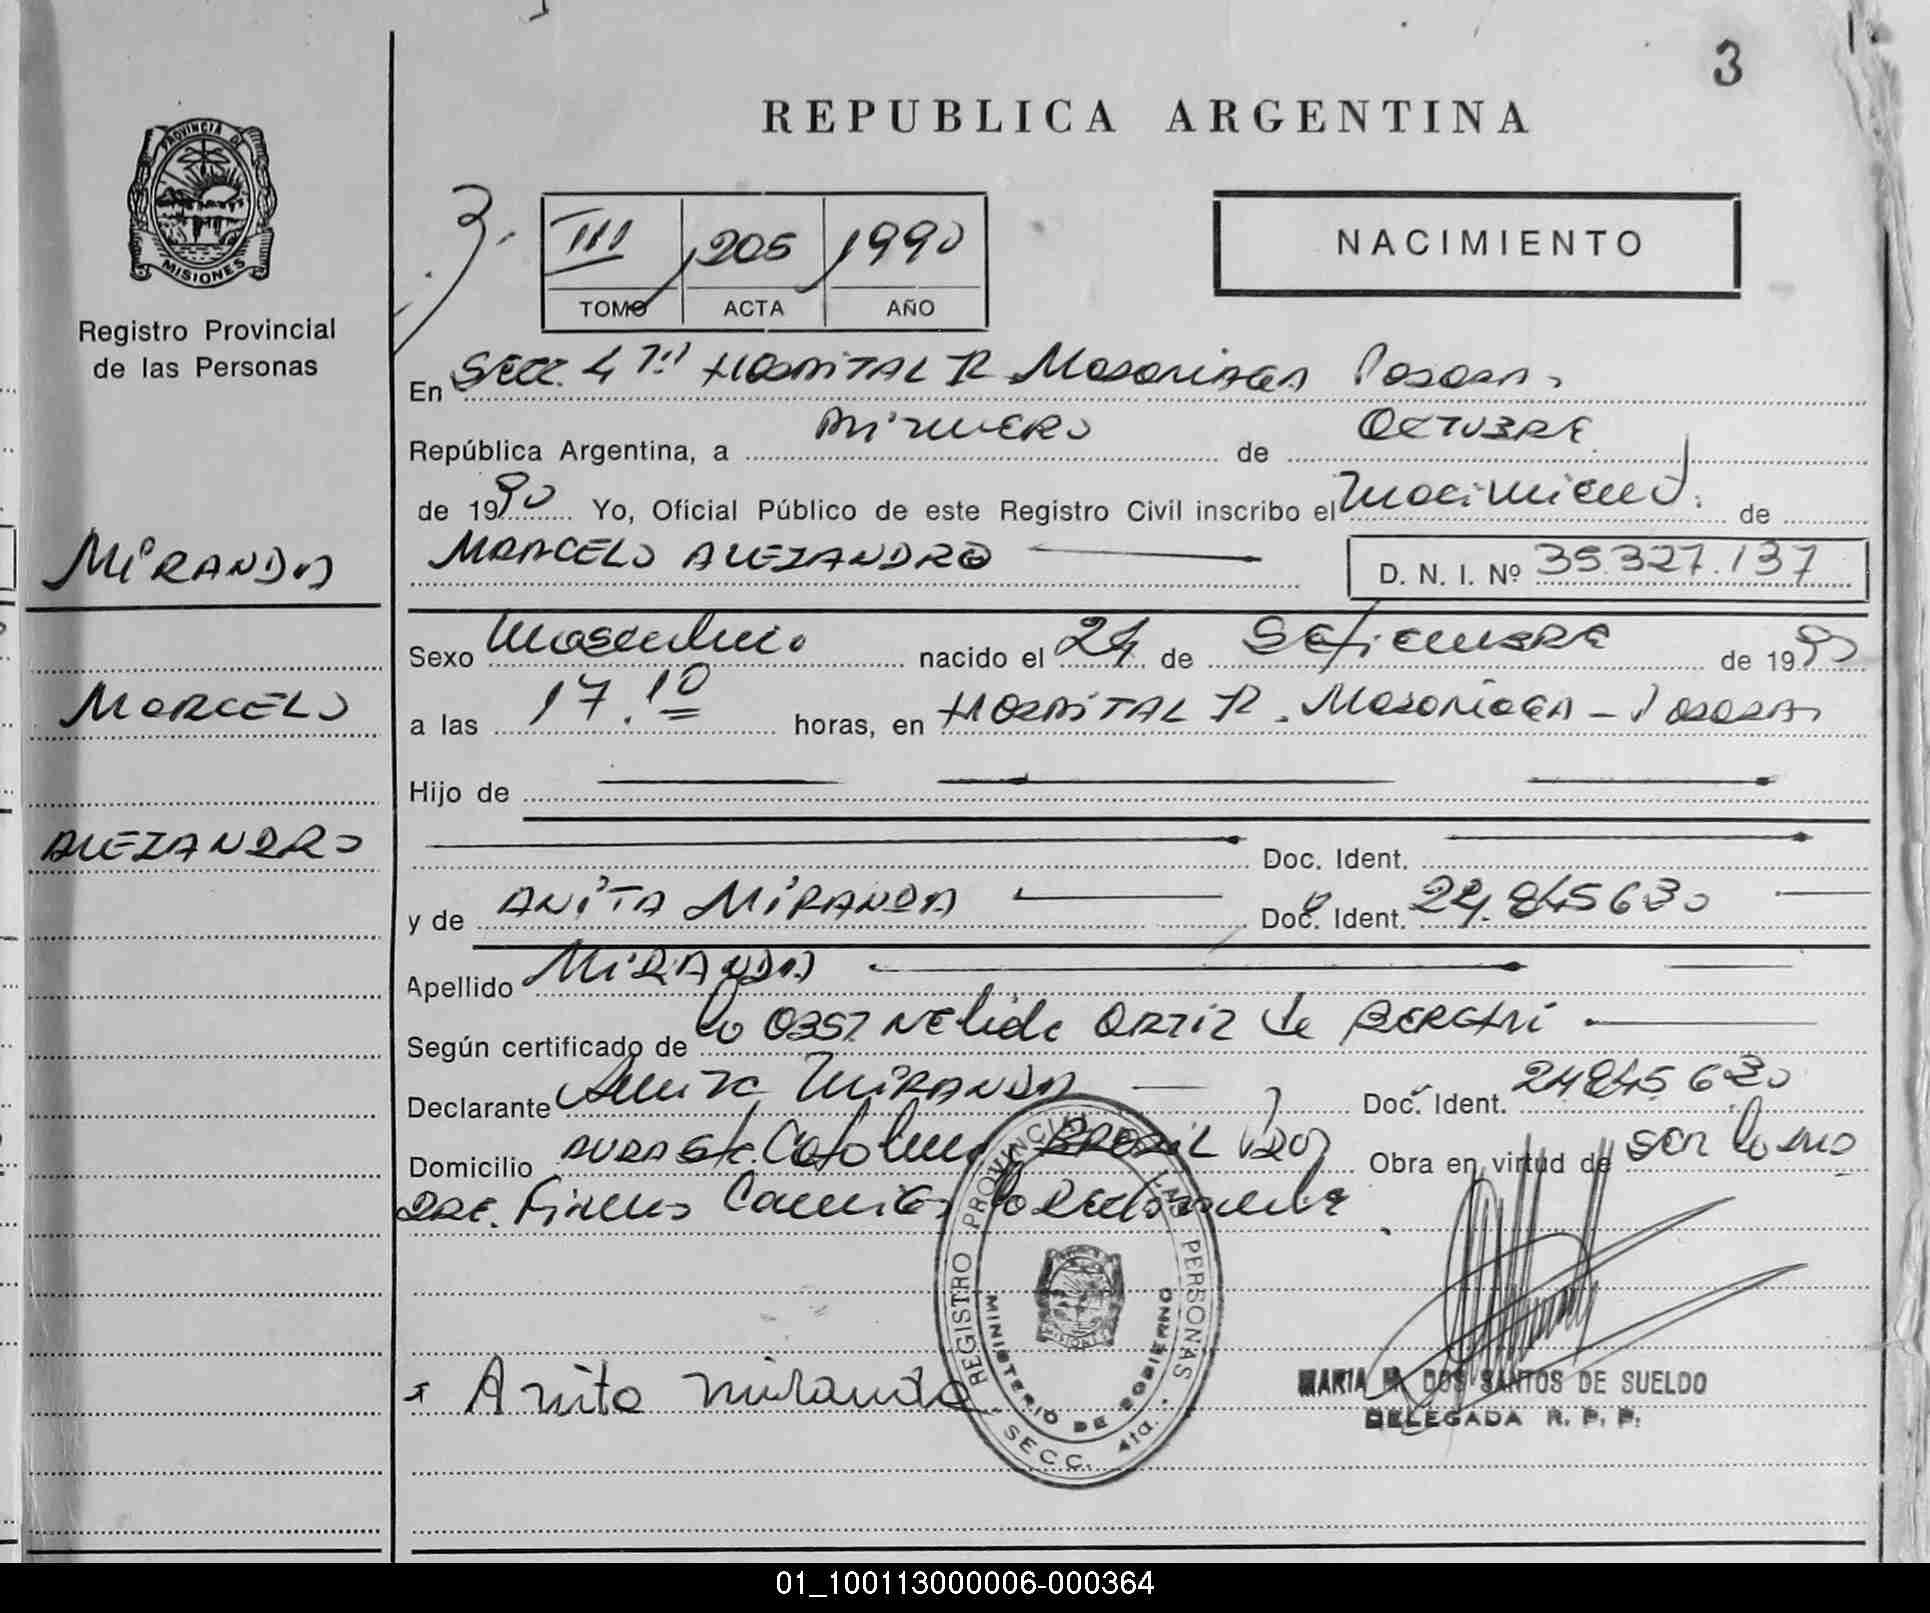 3
REPUBLICA ARGENTINA
PROVINCIA DE
MISIONES
Registro Provincial
de las Personas
3.
III 205 1990
TOMO ACTA AÑO
NACIMIENTO
En SECC. 4 HOSPITAL R. Madariaga Posadas
República Argentina, a PRIMERO de OCTUBRE
de 1990 Yo, Oficial Público de este Registro Civil inscribo el nacimiento de
MARCELO ALEJANDRO D. N. I. Nº 35.327.137
MIRANDA
MARCELO
ALEJANDRO
Sexo Masculino nacido el 24 de SETIEMBRE de 1990
a las 17.10 horas, en HOSPITAL R. Madariaga - Posadas
Hijo de
Doc. Ident.
y de ANITA MIRANDA Doc. Ident. 24.845630
Apellido MIRANDA
Según certificado de la OBST NELida ORTIZ de
Declarante Anita MIRANDA Doc. Ident. 24845630
Domicilio Brasil Obra en virtud de ser la
DRE. Firma la Declarante
Anita Miranda
REGISTRO PROVINCIAL DE LAS PERSONAS
MINISTERIO DE GOBIERNO
MISIONES
SECC. 4ta.
MARIA DOS SANTOS DE SUELDO
DELEGADA R. P. P.
01_100113000006-000364